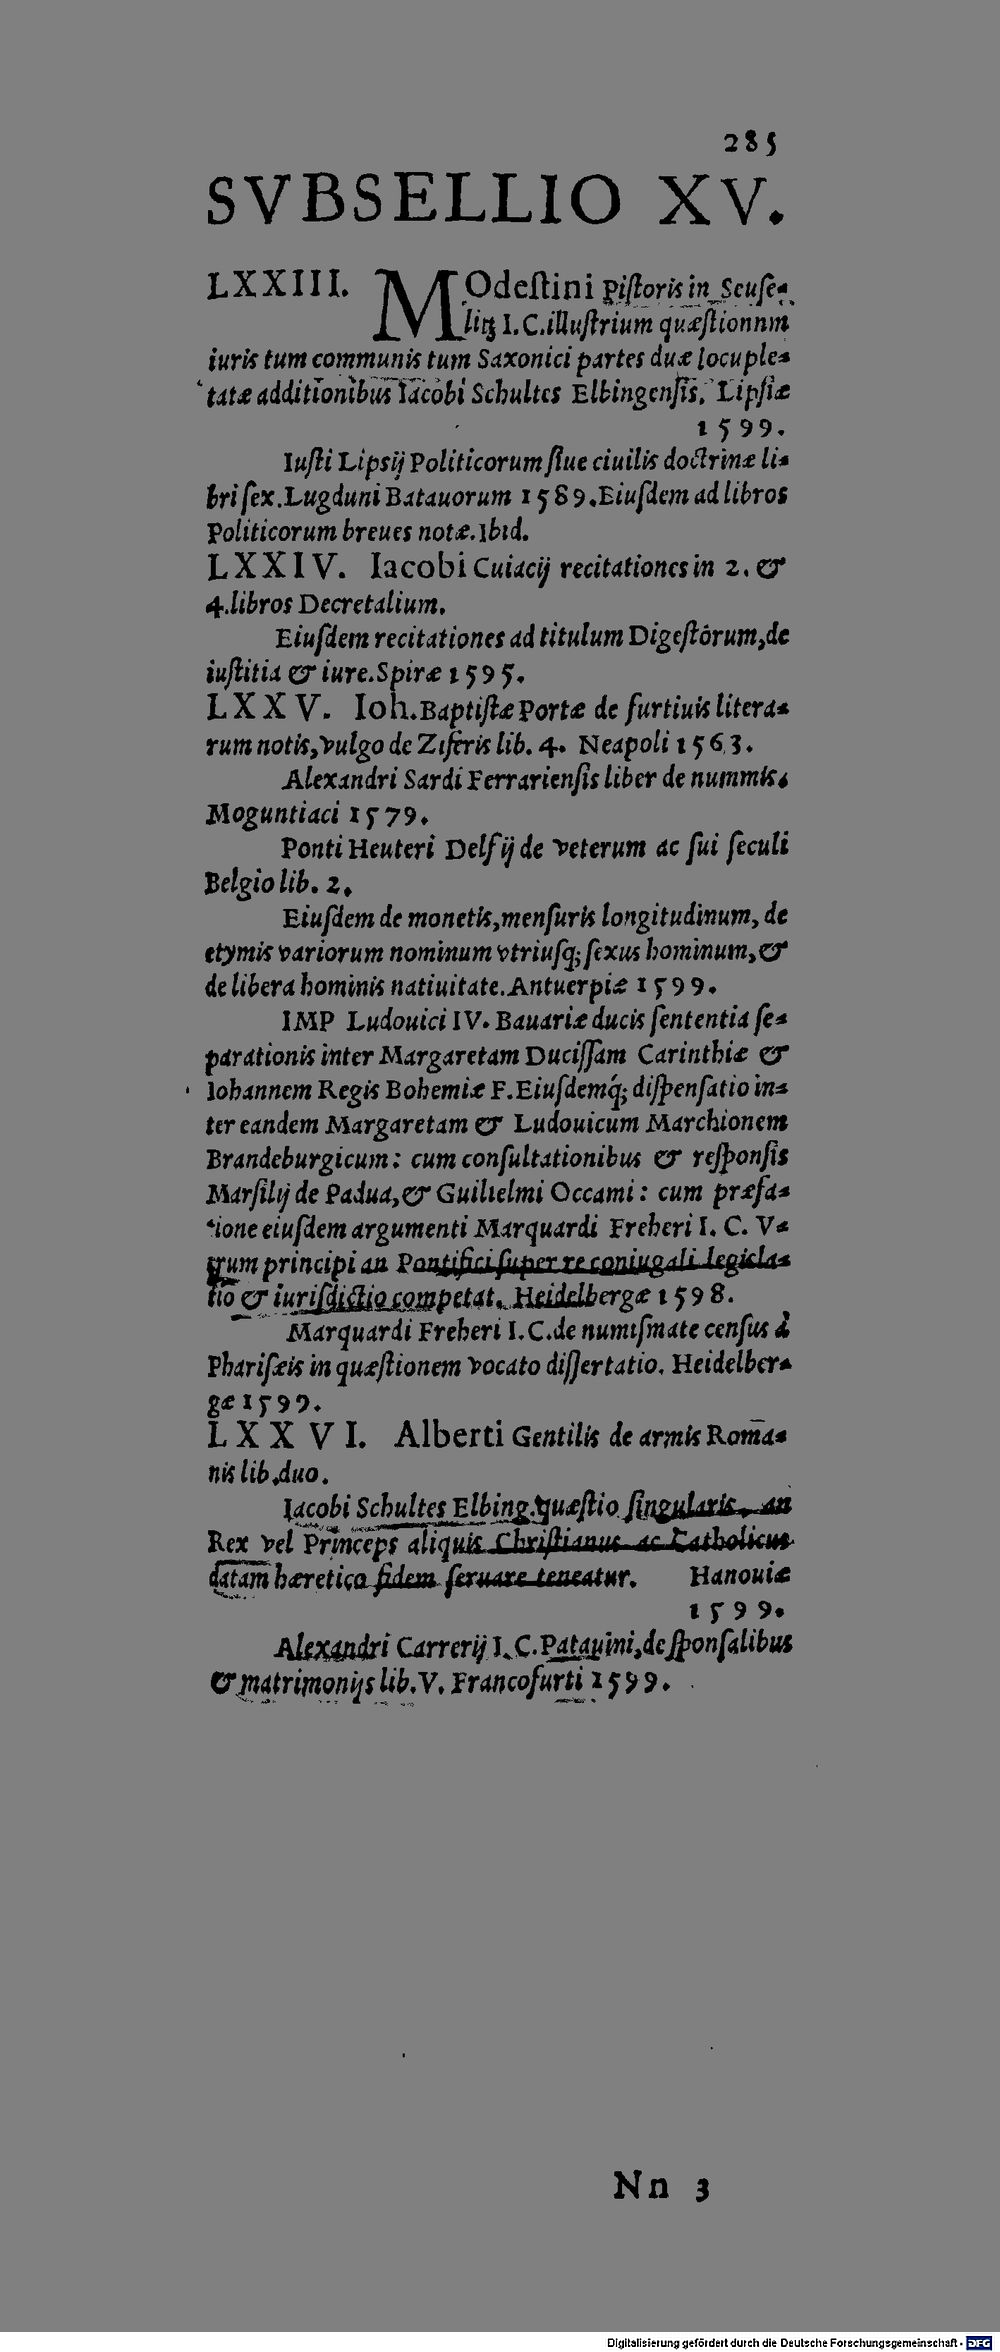 285
SVBSELLIO XV.
LXXIII. MOdeſtini Piſtoris in Seuſe-
litz I.C. illuſtrium quæſtionnm
iuris tum communis tum Saxonici partes duæ locuple-
tatæ additionibus Iacobi Schultes Elbingenſis. Lipſiæ
1599.
Iuſti Lipsij Politicorum ſiue ciuilis doctrinæ li-
bri ſex. Lugduni Batauorum 1589. Eiuſdem ad libros
Politicorum breues notæ. Ibid.
LXXIV. Iacobi Cuiacij recitationes in 2. &
4. libros Decretalium.
Eiuſdem recitationes ad titulum Digeſtorum, de
iuſtitia & iure. Spiræ 1595.
LXXV. Ioh. Baptiſtæ Portæ de furtiuis litera-
rum notis, vulgo de Ziferis lib. 4. Neapoli 1563.
Alexandri Sardi Ferrarienſis liber de nummis.
Moguntiaci 1579.
Ponti Heuteri Delfij de veterum ac ſui ſeculi
Belgio lib. 2.
Eiuſdem de monetis, menſuris longitudinum, de
etymis variorum nominum vtriuſq; ſexus hominum, &
de libera hominis natiuitate. Antuerpiæ 1599.
IMP Ludouici IV. Bauariæ ducis ſententia ſe-
parationis inter Margaretam Duciſſam Carinthiæ &
Iohannem Regis Bohemiæ F. Eiuſdemq́; diſpenſatio in-
ter eandem Margaretam & Ludouicum Marchionem
Brandeburgicum: cum conſultationibus & reſponſis
Marſilij de Padua, & Guilielmi Occami: cum præfa-
tione eiuſdem argumenti Marquardi Freheri I. C. V-
trum principi an Pontifici ſuper re coniugali legiſla-
tio & iuriſdictio competat. Heidelbergæ 1598.
Marquardi Freheri I.C. de numiſmate cenſus à
Phariſæis in quæſtionem vocato diſſertatio. Heidelber-
gæ 1599.
LXXVI. Alberti Gentilis de armis Roma-
nis lib. duo.
Iacobi Schultes Elbing. quæſtio ſingularis, an
Rex vel Princeps aliquis Chriſtianus ac Catholicus
datam hæretico fidem ſeruare teneatur. Hanouiæ
1599.
Alexandri Carrerij I.C. Patauini, de ſponſalibus
& matrimonijs lib. V. Francofurti 1599.
Nn 3
Digitalisierung gefördert durch die Deutsche Forschungsgemeinschaft - DFG